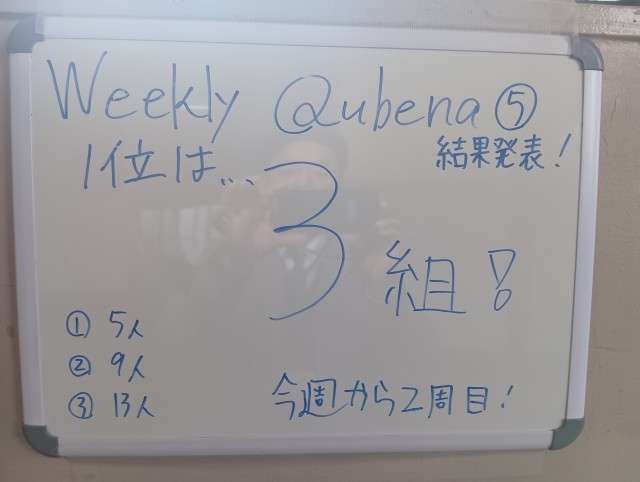 Weekly Qubena⑤
結果発表!
1位は...
3組!
① 5人
② 9人
③ 13人
今週から2周目!